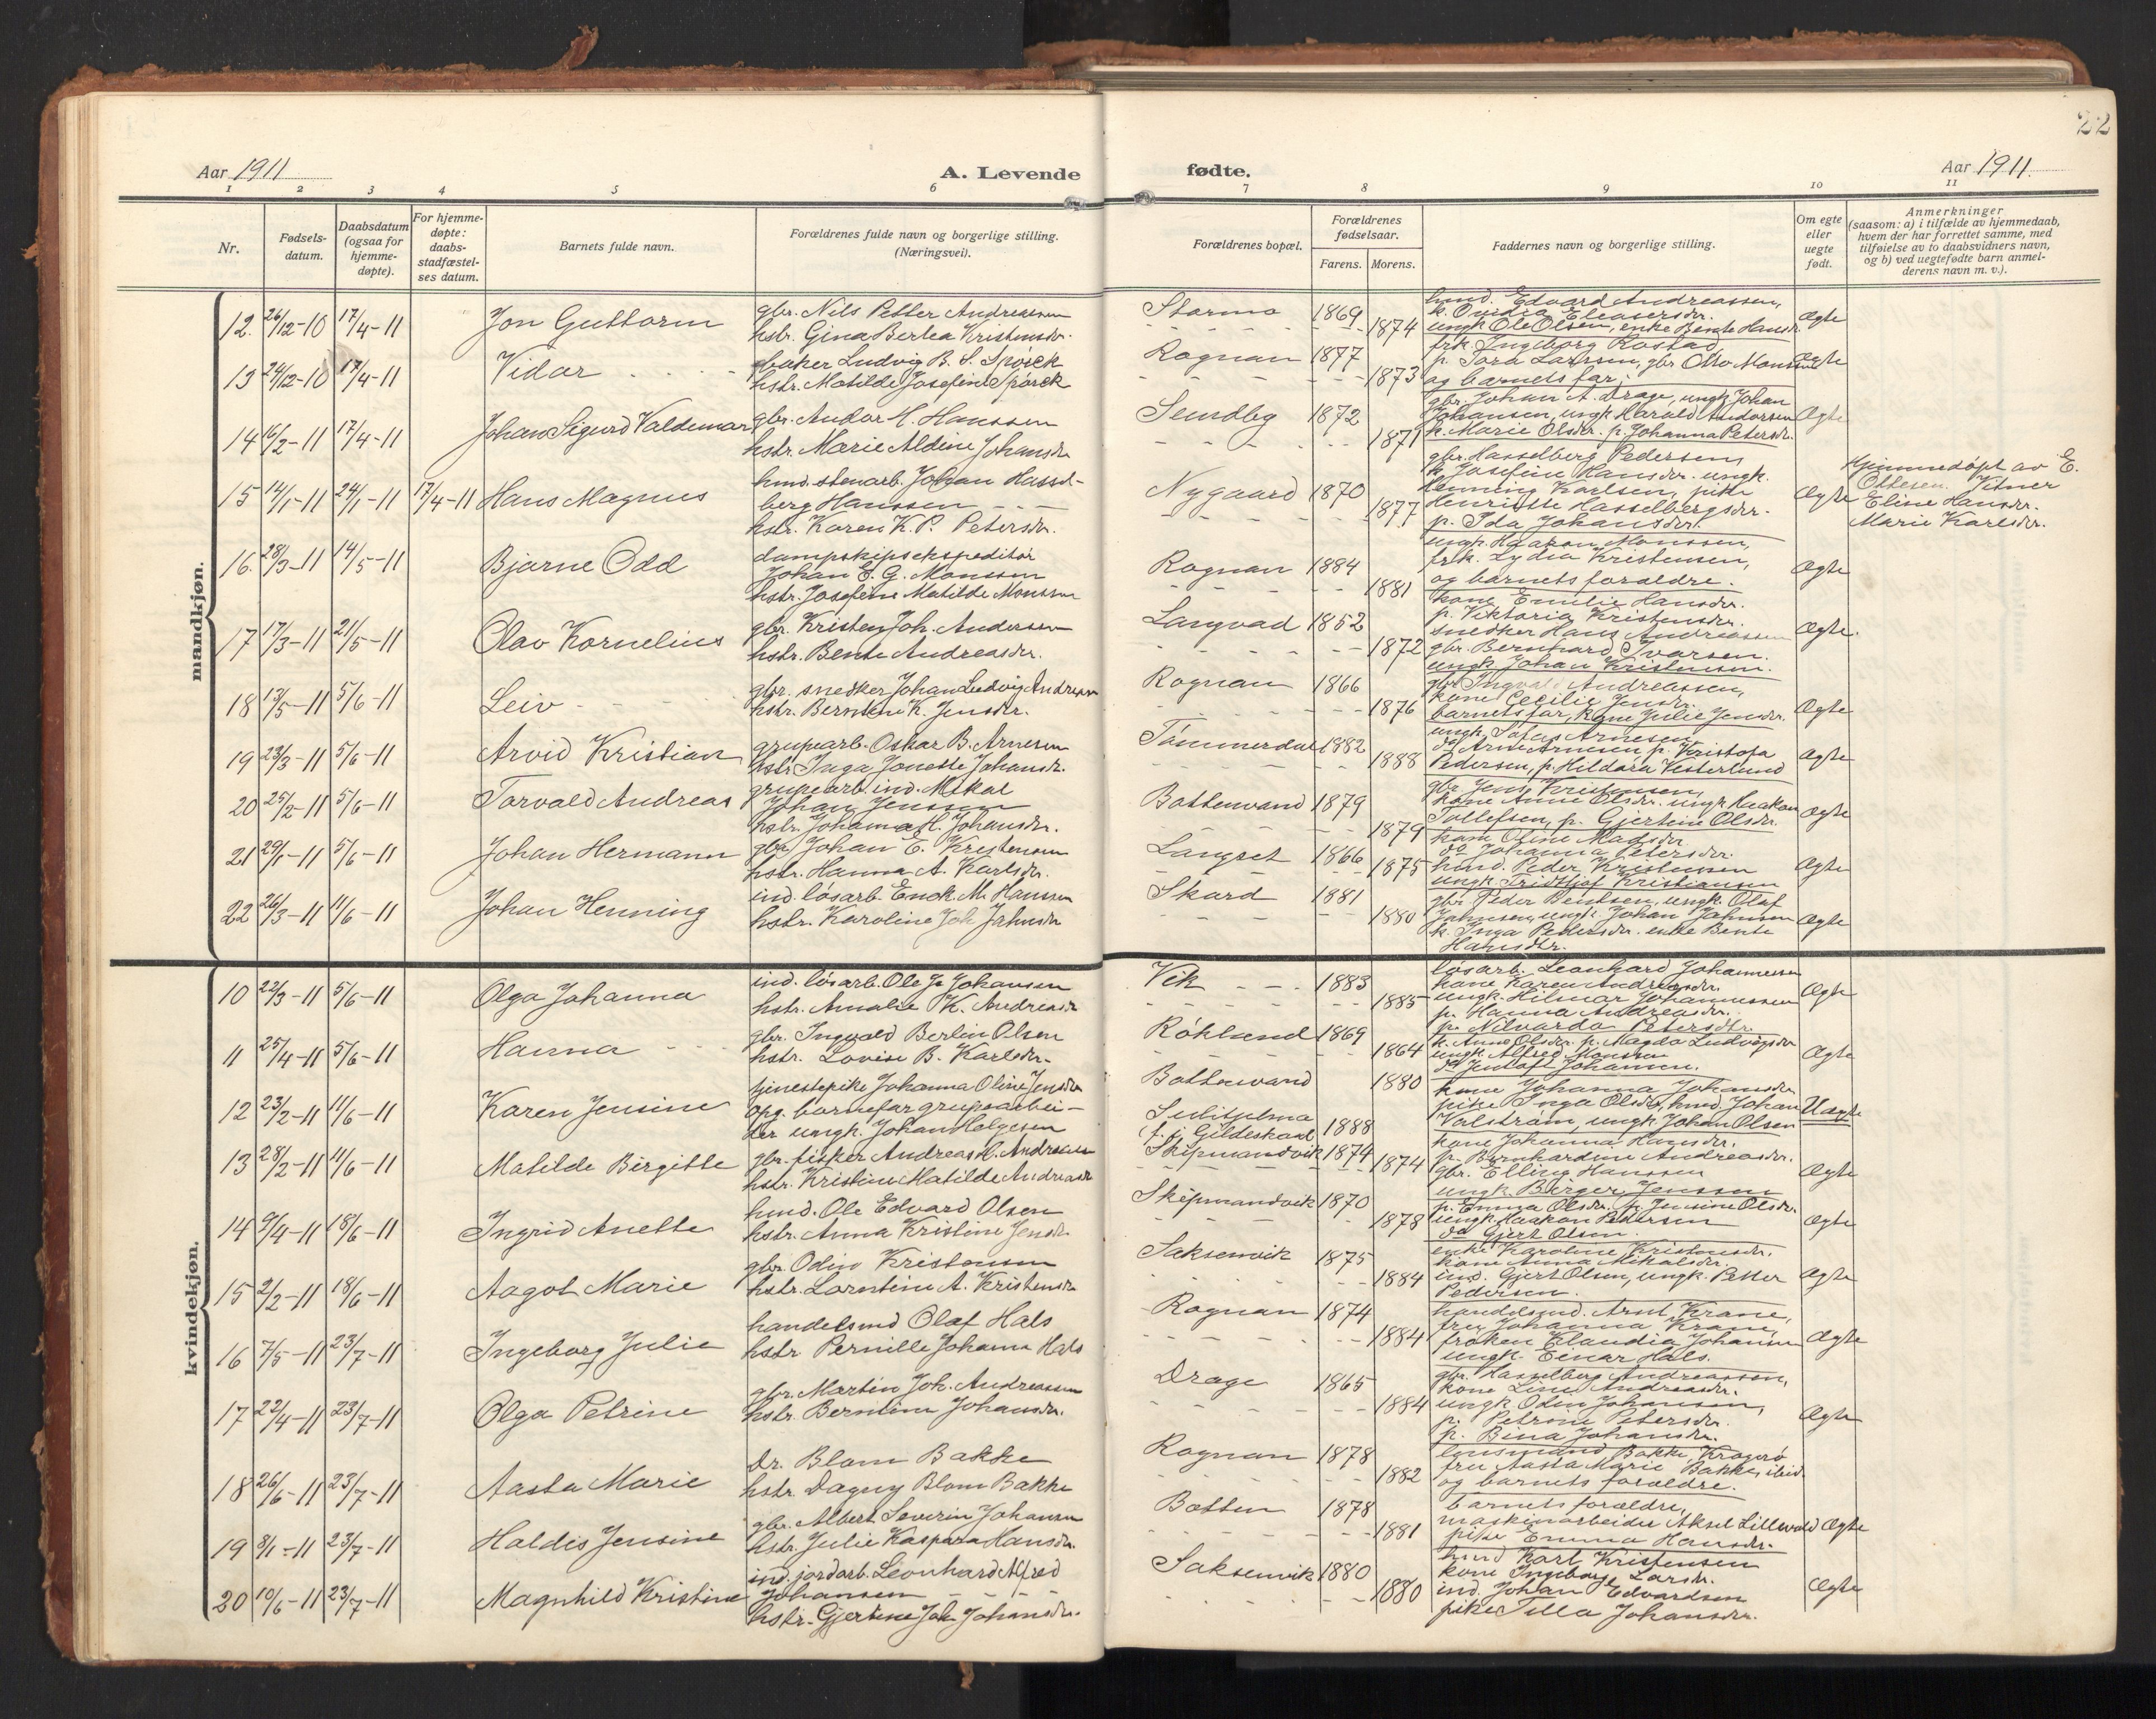 22
Aar 1911
A. Levende
fødte.
Aar 1911.
1 2 3 4 5 6
7 8 9 10 11
Nr.
Fødsels-
datum.
Daabsdatum
(ogsaa for
hjemme-
døpte).
For hjemme-
døpte:
daabs-
stadfæstel-
ses datum.
Barnets fulde navn.
Forældrenes fulde navn og borgerlige stilling.
(Næringsvei).
Forældrenes bopæl.
Forældrenes
fødselsaar.
Farens. Morens.
Faddernes navn og borgerlige stilling.
Om egte
eller
uegte
født.
Anmerkninger
(saasom: a) i tilfælde av hjemmedaab,
hvem der har forrettet samme, med
tilføielse av to daabsvidners navn,
og b) ved uegtefødte barn anmel-
derens navn m. v.).
mandkjøn.
12. 26/12-10 17/4-11 Jon Guttorm
gbr. Nils Petter Andreassen
hstr. Gina Bertea Kristensdr.
Stormo 1869 1874
hmd. Edvard Andreassen,
k. Ovidia Eleasersdr.
ungk Ole Olsen, enke Bente Hansdr.
Ægte
13 24/12-10 17/4-11 Vidar
baker Ludvig B. S. Spörck
hstr. Matilde Josefine Spörck
Rognan 1877 1873
frk. Ingeborg Rostad
p. Tora Larssen, gbr Otto Monssen
og barnets far.
Ægte
14 16/2-11 17/4-11 Johan Sigurd Valdemar
gbr. Andor H. Hanssen
hstr. Marie Aldine Johansdr
Sundby 1872 1871
gbr. Johan A. Drage, ungk Johan
Johansen, ungk Harald Andorsen
k. Marie Olsdr. p. Johanna Petersdr.
Ægte
15 14/1-11 24/1-11 17/4-11 Hans Magnus
hmd. stenarb. Johan Hassel-
berg Hanssen
hstr. Karen K. P. Petersdr.
Nygaard 1870 1877
gbr. Hasselberg Pedersen,
k. Josefine Hansdr. ungk.
Henning Karlsen, pike
Henriette Hasselbergsdr.
p. Ida Johansdr.
Ægte
Hjemmedöpt av E.
Ottesen. Vitner
Eline Hansdr.
Marie Karlsdr.
16. 28/3-11 14/5-11 Bjarne Odd
dampskipsekspeditör
Johan E. G. Monssen
hstr. Josefine Matilde Monssen
Rognan 1884 1881
ungk. Haakon Monssen,
frk. Lydia Kristensen,
og barnets forældre.
Ægte
17 17/3-11 21/5-11 Olav Kornelius
gbr. Kristen Joh. Andersen
hstr. Bente Andreasdr.
Langvad 1852 1872
kone Emilie Hansdr.
p. Viktoria Kristensdr.
snedker Hans Andreassen
gbr. Bernhard Ivarsen.
ungk Johan Kristensen.
Ægte.
18 13/5-11 5/6-11 Leiv
gbr. snedker Johan Ludvig Andreassen
hstr. Berntine K. Jensdr.
Rognan 1866 1876
gbr. Ingvald Andreassen,
kone Cecilie Jensdr.
barnets far, kone Julie Jensdr.
Ægte
19 23/3-11 5/6-11 Arvid Kristian
grupearb. Oskar B. Arnesen
hstr. Inga Jonette Johansdr.
Tömmerdal 1882 1888
do Arne Arnesen p. Kristofa
Pedersen, p. Hildora Vesterlund
Ægte
20 25/2-11 5/6-11 Torvald Andreas
grupearb. ind. Mikal
Johan Jenssen
hstr. Johanna H. Johansdr.
Bottenvand 1879 1879
gbr Jens Kristensen,
kone Anne Olsdr. ungk Haakon
Tollefsen, p. Gjertine Olsdr
Ægte
21 29/1-11 5/6-11 Johan Hermann
gbr. Johan E. Kristensen
hstr. Hanna A. Karlsdr.
Langset 1866 1875
kone Oline Madsdr
do Johanna Petersdr.
hmd. Peder Kristensen
ungk. Fridtjof Kristiansen
Ægte
22 26/3-11 11/6-11 Johan Henning
ind. lösarb. Enok M. Hanssen
hstr. Karoline Joh Jahnsdr
Skard 1881 1880
gbr Peder Bentsen, ungk. Olaf
Jahnsen, ungk. Johan Jahnsen
k. Inga Pedersdr. enke Bente
Hansdtr.
Ægte
kvindekjøn.
10 22/3-11 5/6-11 Olga Johanna
ind. lösarb. Ole J. Johansen
hstr. Amalie K. Andreasdr
Vik 1883 1885
lösarb. Leonhard Johannessen
kone Karen Andreasdr.
ungk. Hilmar Johannessen
p. Hanna Andreasdr.
p. Nilvarda Petersdtr.
Ægte
11 25/4-11 5/6-11 Hanna
gbr. Ingvald Berlin Olsen
hstr. Lovise B. Karlsdr.
Röklund 1869 1864
k. Anne Olsdr. p. Magda Ludvigsdr
ungk. Alfred Monssen
do Jentoft Johansen.
Ægte
12 23/2-11 11/6-11 Karen Jensine
tjenestepike Johanna Oline Jensdr
opg. barnefar grupearbei-
der ungk. Johan Helgesen
Bottenvand 1880
Sulitjelma
f. i Gildeskaal 1888
kone Johanna Johansdr
pike Inga Olsdr, hmd. Johan
Valström, ungk Johan Olsen
Uægte
13 28/2-11 11/6-11 Matilde Birgitte
gbr. fisker Andreas H. Andreassen
hstr. Kristine Matilde Andreasdr
Skipmandvik 1874 1874
kone Johanna Hansdr.
p. Bernhardine Andreasdr.
gbr. Elling Hanssen
ungk. Birger Jenssen
Ægte
14 9/4-11 18/6-11 Ingrid Anette
hmd. Ole Edvard Olsen
hstr. Anna Kristine Jensdr
Skipmandvik 1870 1878
p. Emma Olsdr. p. Jensine Olsdr.
ungk. Haakon Pettersen
do Gjert Olsen.
Ægte
15 2/2-11 18/6-11 Aagot Marie
gbr. Odin Kristensen
hstr. Lorntine A. Kristensdr
Saksenvik 1875 1884
enke Karoline Kristensdr.
kone Anna Mikalsdr.
ind. Gjert Olsen, ungk. Petter
Pedersen.
Ægte
16 7/5-11 23/7-11 Ingeborg Julie
handelsmd Olaf Hals
hstr Pernille Johanne Hals
Rognan 1874 1884
handelsmd. Arnt Krane,
fru Johanna Krane,
fröken Klaudia Johansen
ungk. Einar Hals.
Ægte
17 22/4-11 23/7-11 Olga Petrine
gbr. Martin Joh. Andreassen
hstr. Berntine Johansdr.
Drage 1865 1884
gbr. Hasselberg Andreassen,
kone Line Andreasdr.
ungk. Odin Johansen,
p. Petrine Petersdr.
p. Bina Johansdr.
Ægte
18 26/6-11 23/7-11 Aasta Marie
Dr. Blom Bakke
hstr. Dagny Blom Bakke
Rognan 1878 1882
lensmand Bakke, Kragerö
fru Aasta Marie Bakke, ibid.
og barnets forældre.
19 8/1-11 23/7-11 Haldis Jensine
gbr. Albert Severin Johansen
hstr. Julie Kaspara Hansdr.
Botten 1878 1881
barnets forældre,
maskinarbeider Aksel Lillevold
pike Emma Hansdr.
Ægte
20 10/6-11 23/7-11 Magnhild Kristine
ind. jordarb. Leonhard Alfred
Johansen
hstr. Gjertine Joh Johansdr.
Saksenvik 1880 1880
hmd Karl Kristensen
kone Ingeborg Larsdr.
ind. Johan Edvardsen
pike Tilla Johansdr.
Ægte